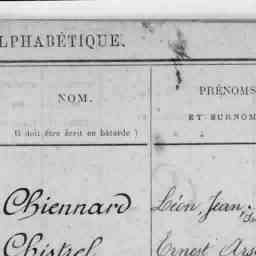 LPHABÉTIQUE.
NOM.
Il doit être écrit en bâtarde)
PRÉNOMS
ET SURNOM
Chiennard
Léon, Jean
Chistrel
Ernest